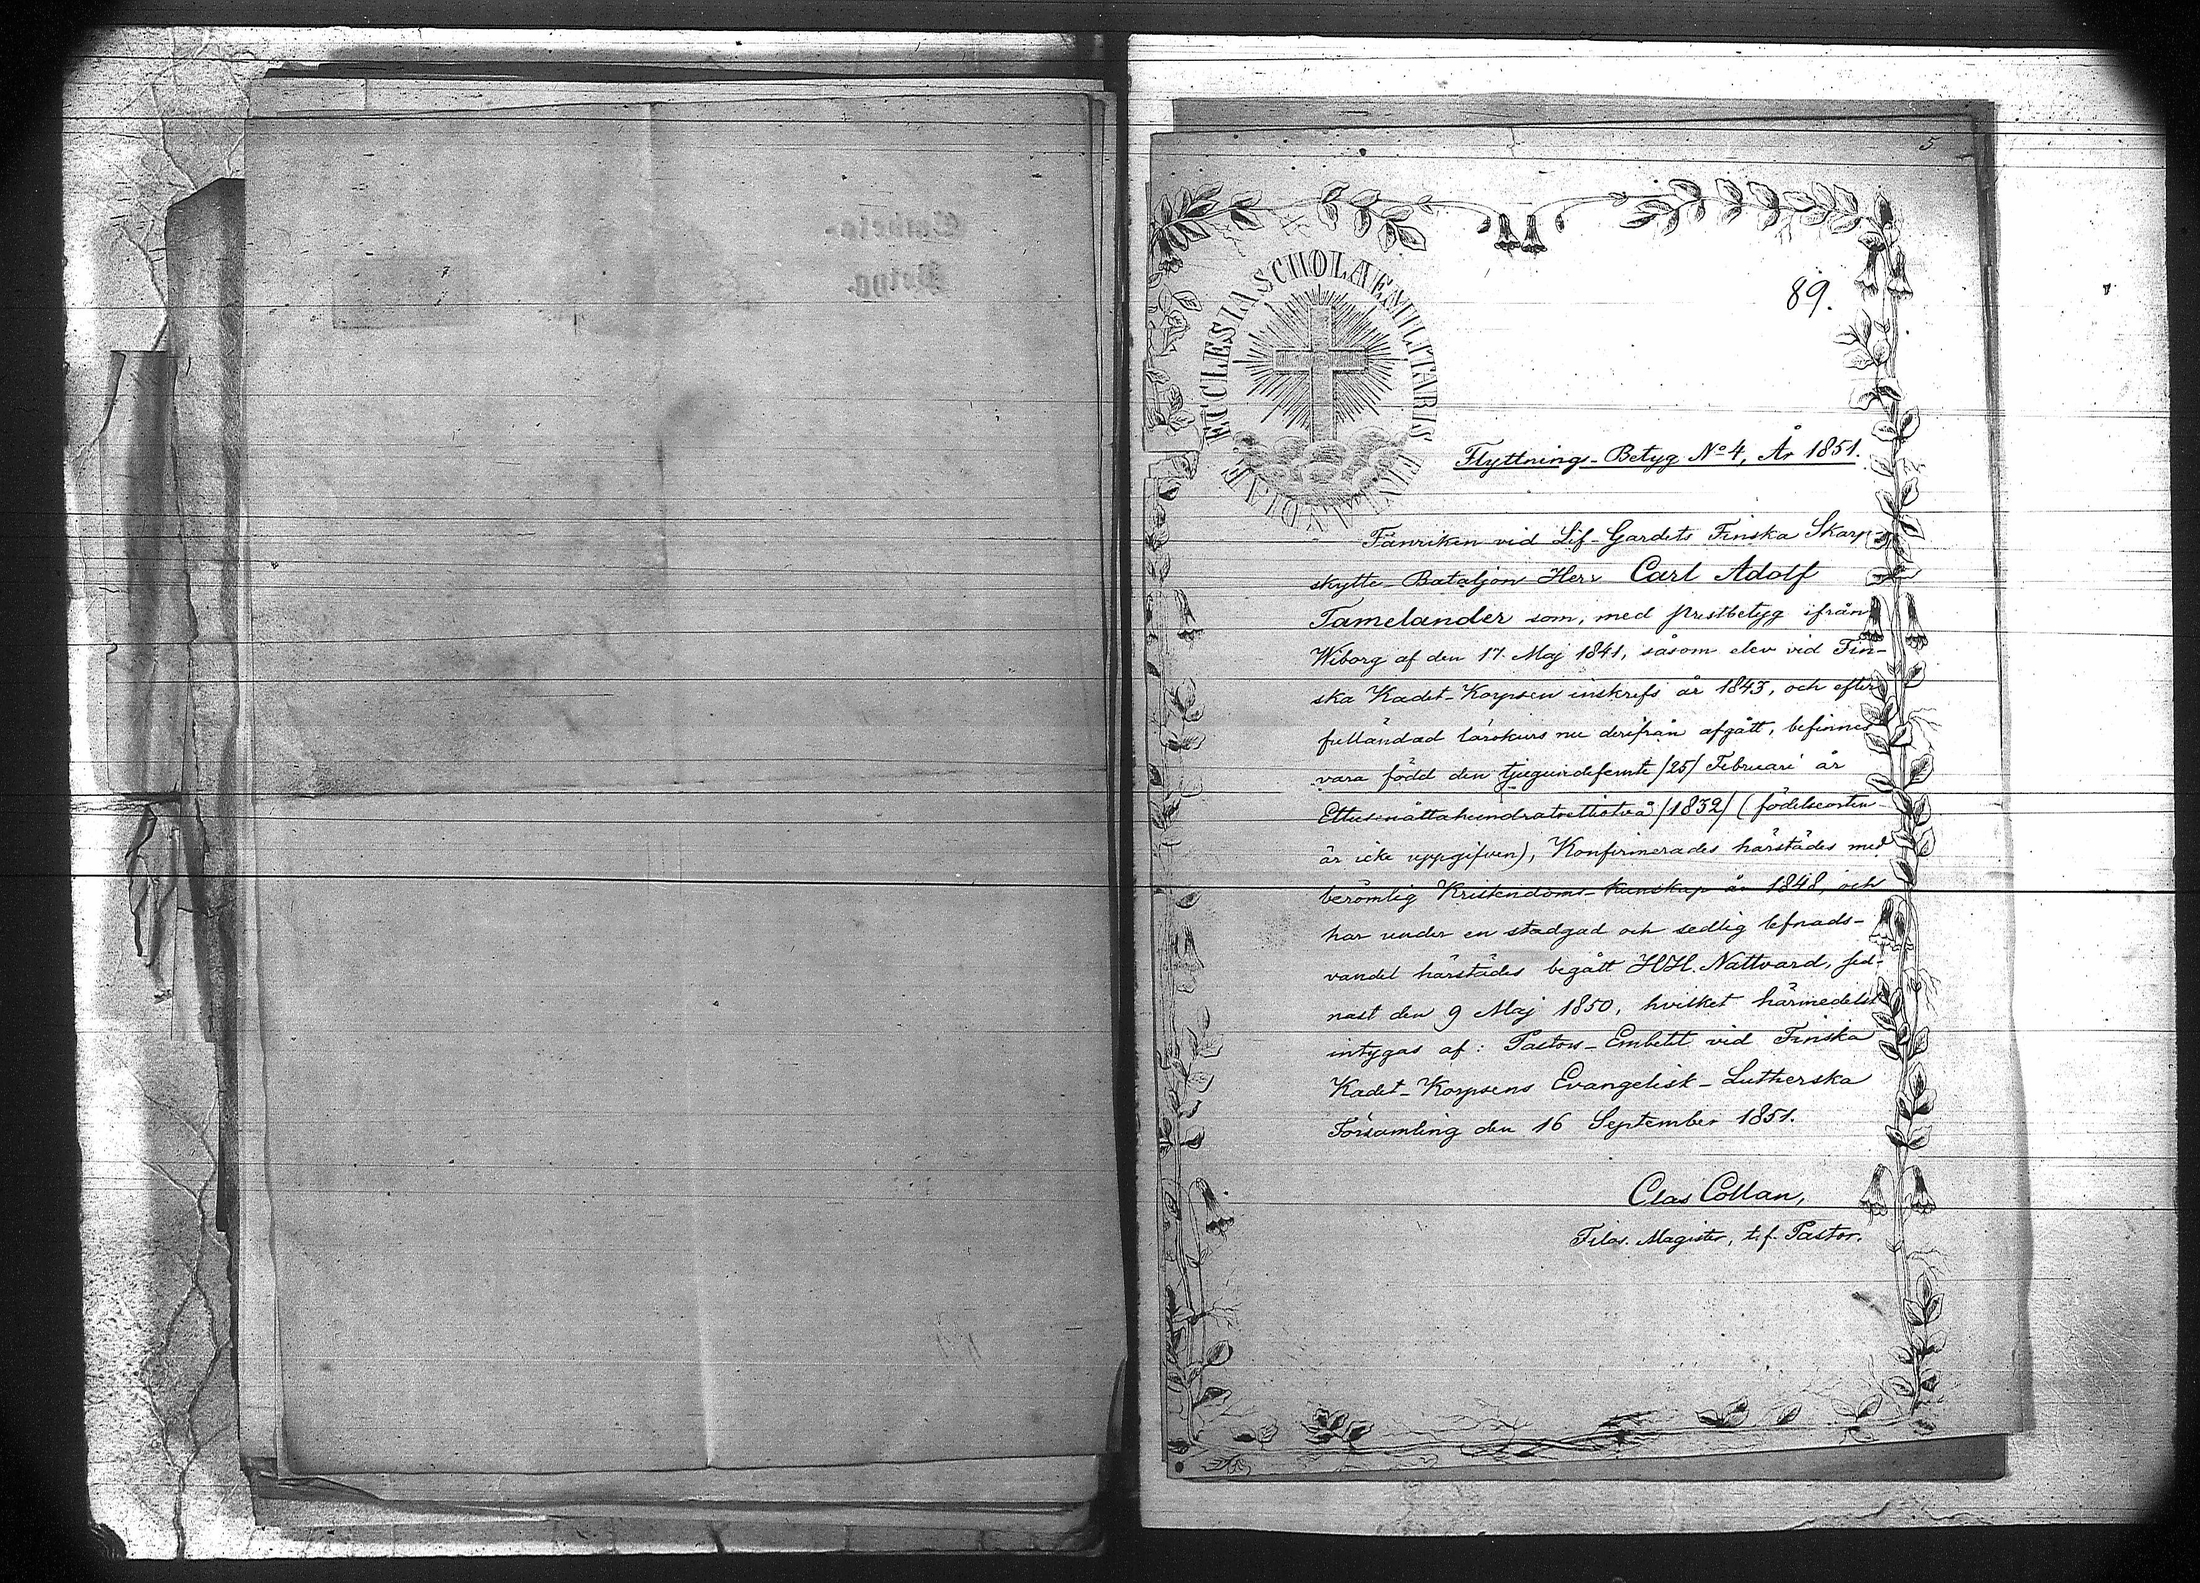 5
89.
ECCLESIA SCHOLÆ MILITARIS FINLANDIÆ
Flyttnings-Betyg No 4, År 1851.
Fänriken vid Lif-Gardets Finska Skarp-
skytte-Bataljon Herr Carl Adolf
Tamelander som, med prestbetyg ifrån
Wiborg af den 17 Maj 1841, såsom elev vid Fin-
ska Kadet-Korpsen inskrefs år 1843, och efter
fulländad lärokurs nu derifrån afgått, befinnes
vara född den tjugundefemte /25/ Februari år
Ettusenåttahundratrettiotvå /1832/ (födelseorten
är icke uppgifven), Konfirmerades härstädes med
berömlig Kristendoms-kunskap år 1848, och
har under en stadgad och sedlig lefnads-
vandel härstädes begått H.H. Nattvard, sed-
nast den 9 Maj 1850, hvilket härmedelst
intygas af: Pastors-Embetet vid Finska
Kadet-Korpsens Evangelisk-Lutherska
Församling den 16 September 1851.
Clas Collan,
Filos. Magister, t.f. Pastor.